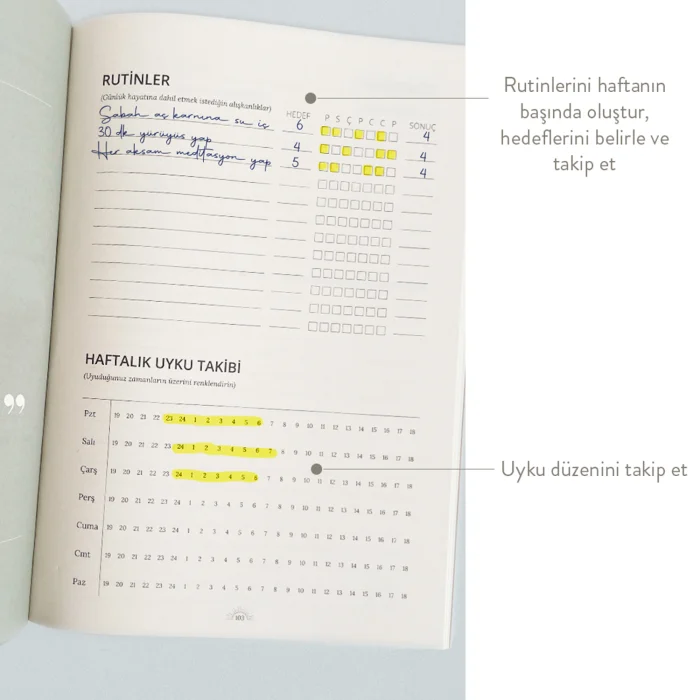 RUTİNLER
(Günlük hayatına dahil etmek istediğin alışkanlıklar)
HEDEF P S Ç P C C P SONUÇ
Sabah aç karnına su iç 6 4
30 dk yürüyüş yap 4 4
Her akşam meditasyon yap 5 4
Rutinlerini haftanın
başında oluştur,
hedeflerini belirle ve
takip et
HAFTALIK UYKU TAKİBİ
(Uyuduğunuz zamanların üzerini renklendirin)
Pzt 19 20 21 22 23 24 1 2 3 4 5 6 7 8 9 10 11 12 13 14 15 16 17 18
Salı 19 20 21 22 23 24 1 2 3 4 5 6 7 8 9 10 11 12 13 14 15 16 17 18
Çarş 19 20 21 22 23 24 1 2 3 4 5 6 7 8 9 10 11 12 13 14 15 16 17 18
Perş 19 20 21 22 23 24 1 2 3 4 5 6 7 8 9 10 11 12 13 14 15 16 17 18
Cuma 19 20 21 22 23 24 1 2 3 4 5 6 7 8 9 10 11 12 13 14 15 16 17 18
Cmt 19 20 21 22 23 24 1 2 3 4 5 6 7 8 9 10 11 12 13 14 15 16 17 18
Paz 19 20 21 22 23 24 1 2 3 4 5 6 7 8 9 10 11 12 13 14 15 16 17 18
Uyku düzenini takip et
103